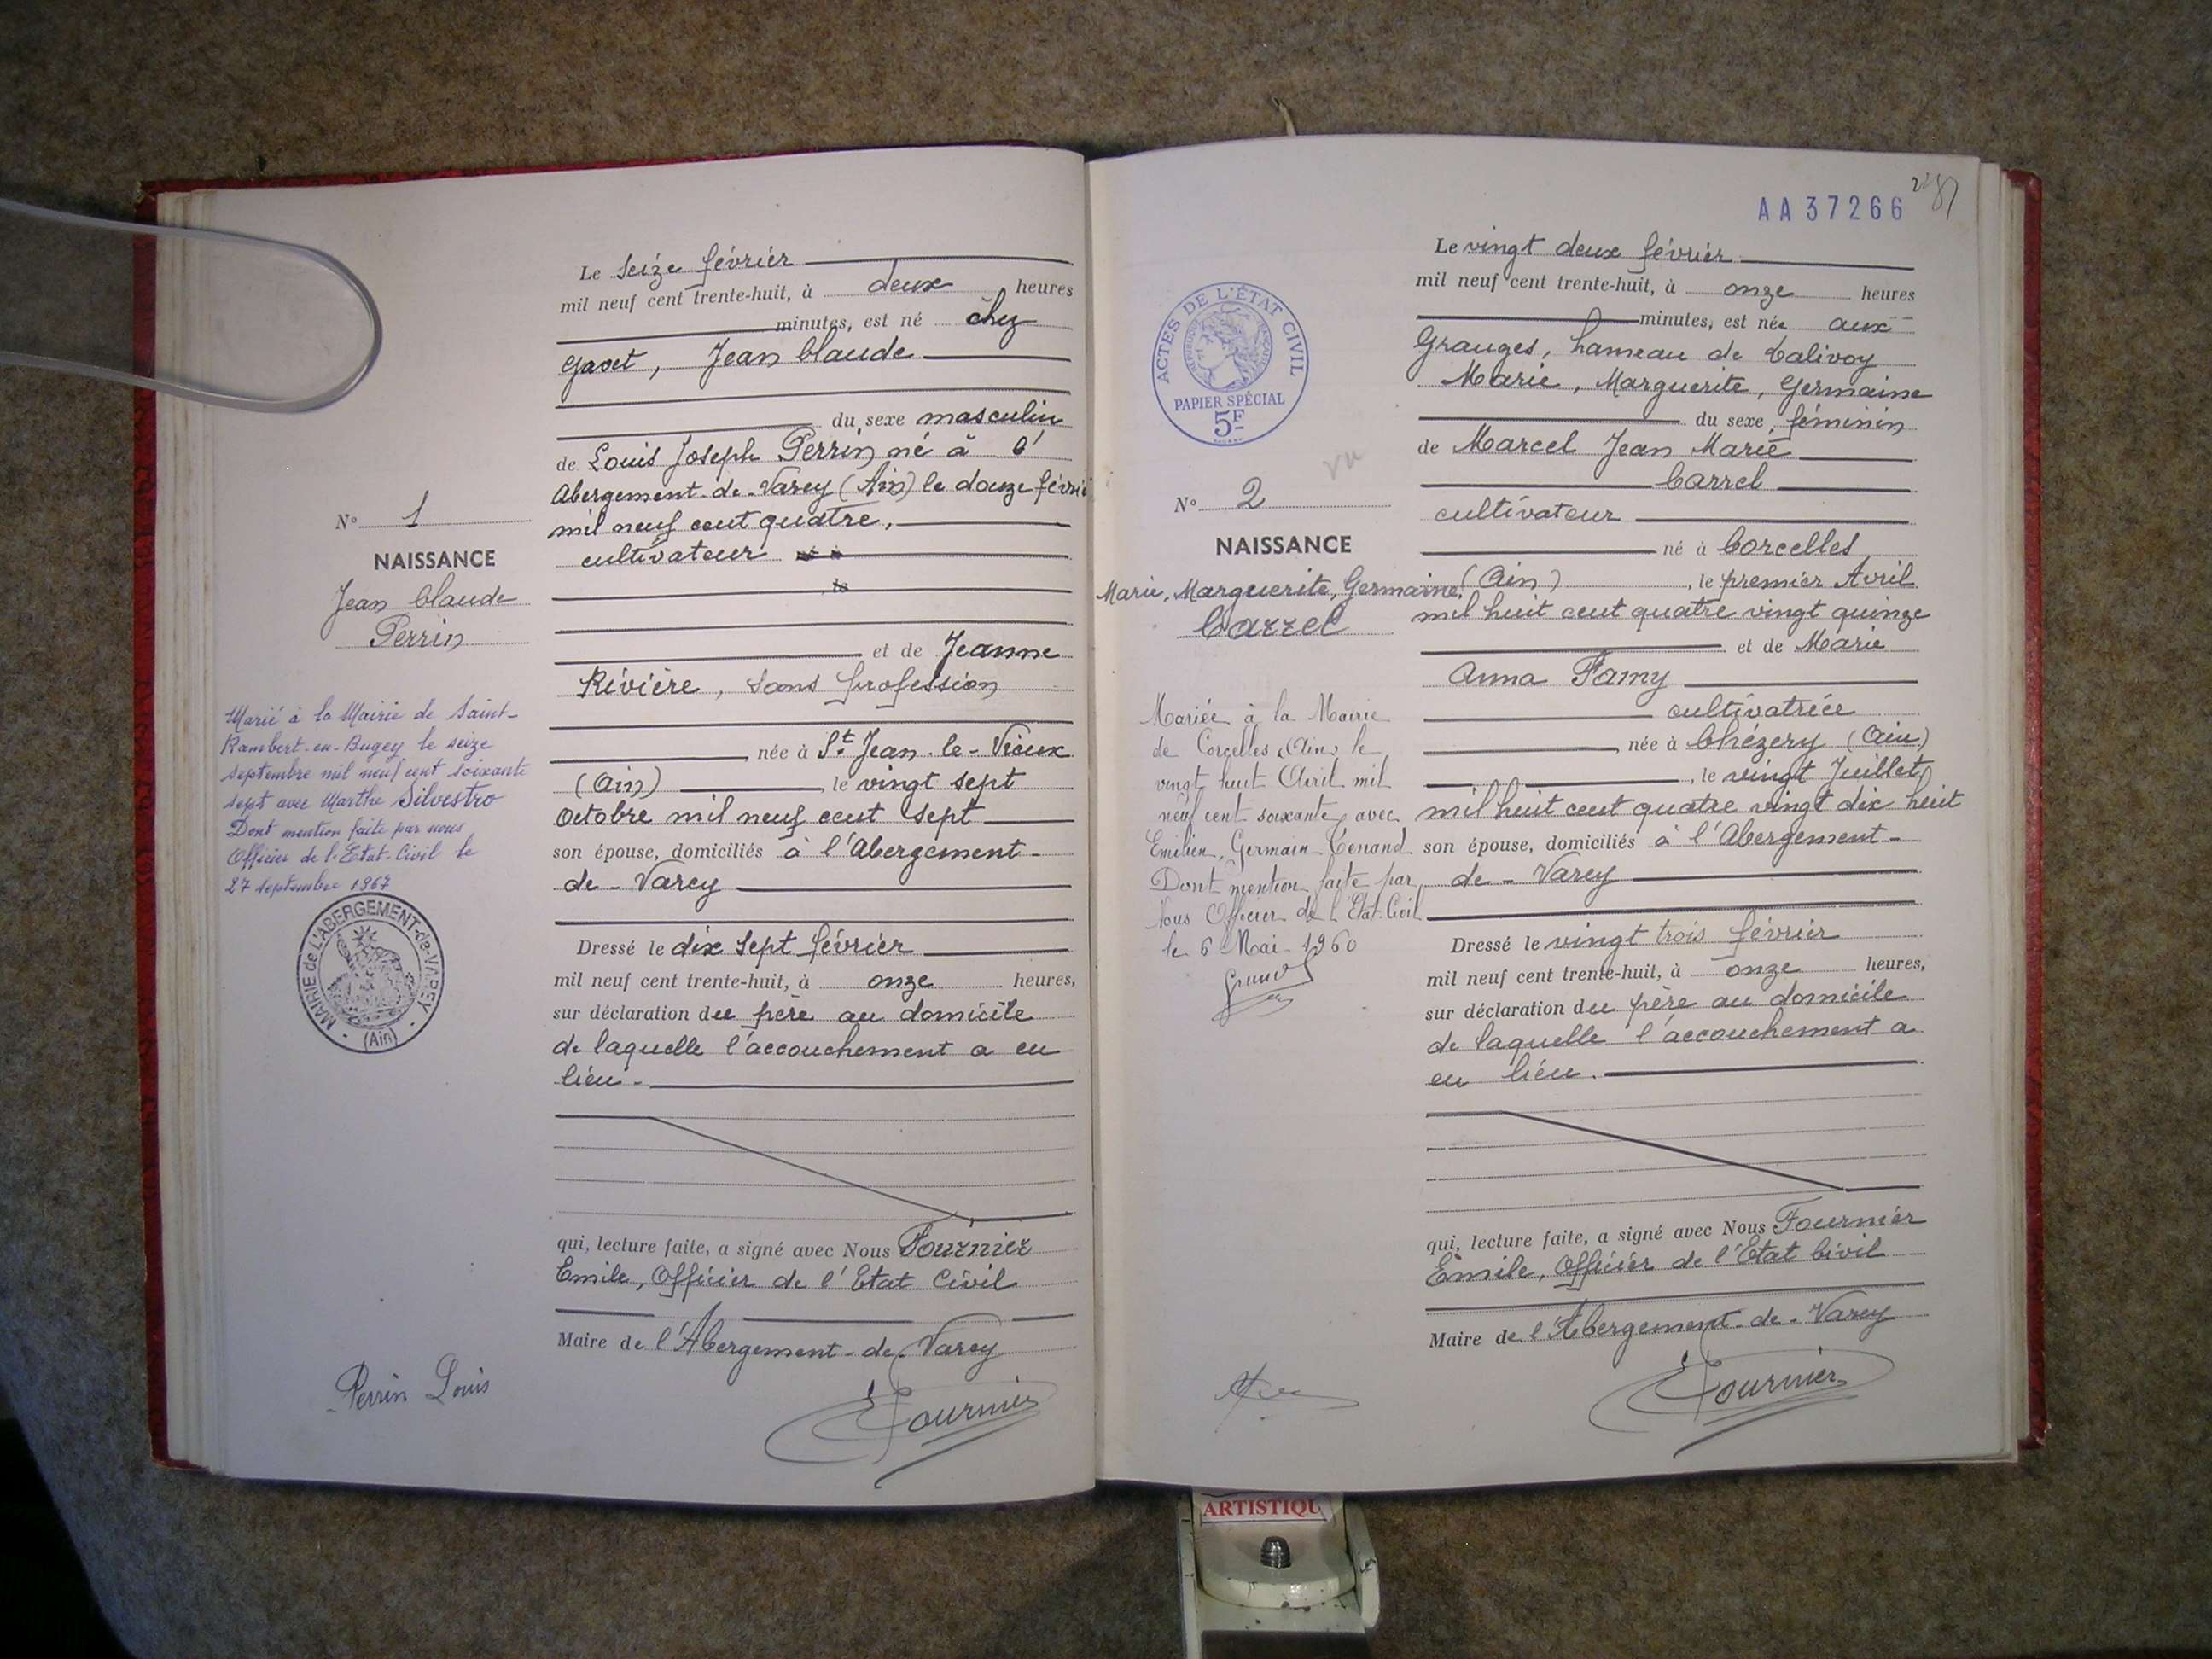 Le Seize février
mil neuf cent trente-huit, à deux heures
minutes, est né chez
Gavet, Jean Claude
du sexe masculin
de Louis Joseph Perrin né à l'
Abergement-de-Varey (Ain) le douze févri
mil neuf cent quatre,
cultivateur
, le
et de Jeanne
Rivière, sans profession
née à St Jean-le-Vieux
(Ain) le vingt sept
Octobre mil neuf cent sept
son épouse, domiciliés à l'Abergement-
de-Varey
Dressé le dix sept février
mil neuf cent trente-huit, à onze heures,
sur déclaration du père au domicile
de laquelle l'accouchement a eu
lieu.
qui, lecture faite, a signé avec Nous Fournier
Emile, Officier de l'Etat Civil
Maire de l'Abergement-de-Varey
Perrin Louis
Fournier
N° 1
NAISSANCE
Jean Claude
Perrin
Marié à la Mairie de Saint-
Rambert-en-Bugey le seize
septembre mil neuf cent soixante
sept avec Marthe Silvestro
Dont mention faite par nous
Officier de l'Etat-Civil le
27 septembre 1967
MAIRIE de L'ABERGEMENT-de-VAREY
(Ain)
AA37266
Le vingt deux février
mil neuf cent trente-huit, à onze heures
minutes, est née aux
Granges, hameau de Calivoy
Marie, Marguerite, Germaine
du sexe féminin
de Marcel Jean Marie
Carrel
cultivateur
né à Corcelles
(Ain) , le premier Avril
mil huit cent quatre vingt quinze
et de Marie
Anna Famy
cultivatrice
née à Chézery (Ain)
, le vingt Juillet
mil huit cent quatre vingt dix huit
son épouse, domiciliés à l'Abergement-
de-Varey
Dressé le vingt trois février
mil neuf cent trente-huit, à onze heures,
sur déclaration du père au domicile
de laquelle l'accouchement a
eu lieu.
qui, lecture faite, a signé avec Nous Fournier
Emile, Officier de l'Etat Civil
Maire de l'Abergement-de-Varey
Fournier
ACTES DE L'ÉTAT CIVIL
RÉPUBLIQUE FRANÇAISE
PAPIER SPÉCIAL
5F
vu
N° 2
NAISSANCE
Marie, Marguerite, Germaine
Carrel
Mariée à la Mairie
de Corcelles (Ain) le
vingt huit Avril mil
neuf cent soixante avec
Emilien, Germain Tenand
Dont mention faite par
Nous Officier de l'Etat-Civil
le 6 Mai 1960
ARTISTIQU